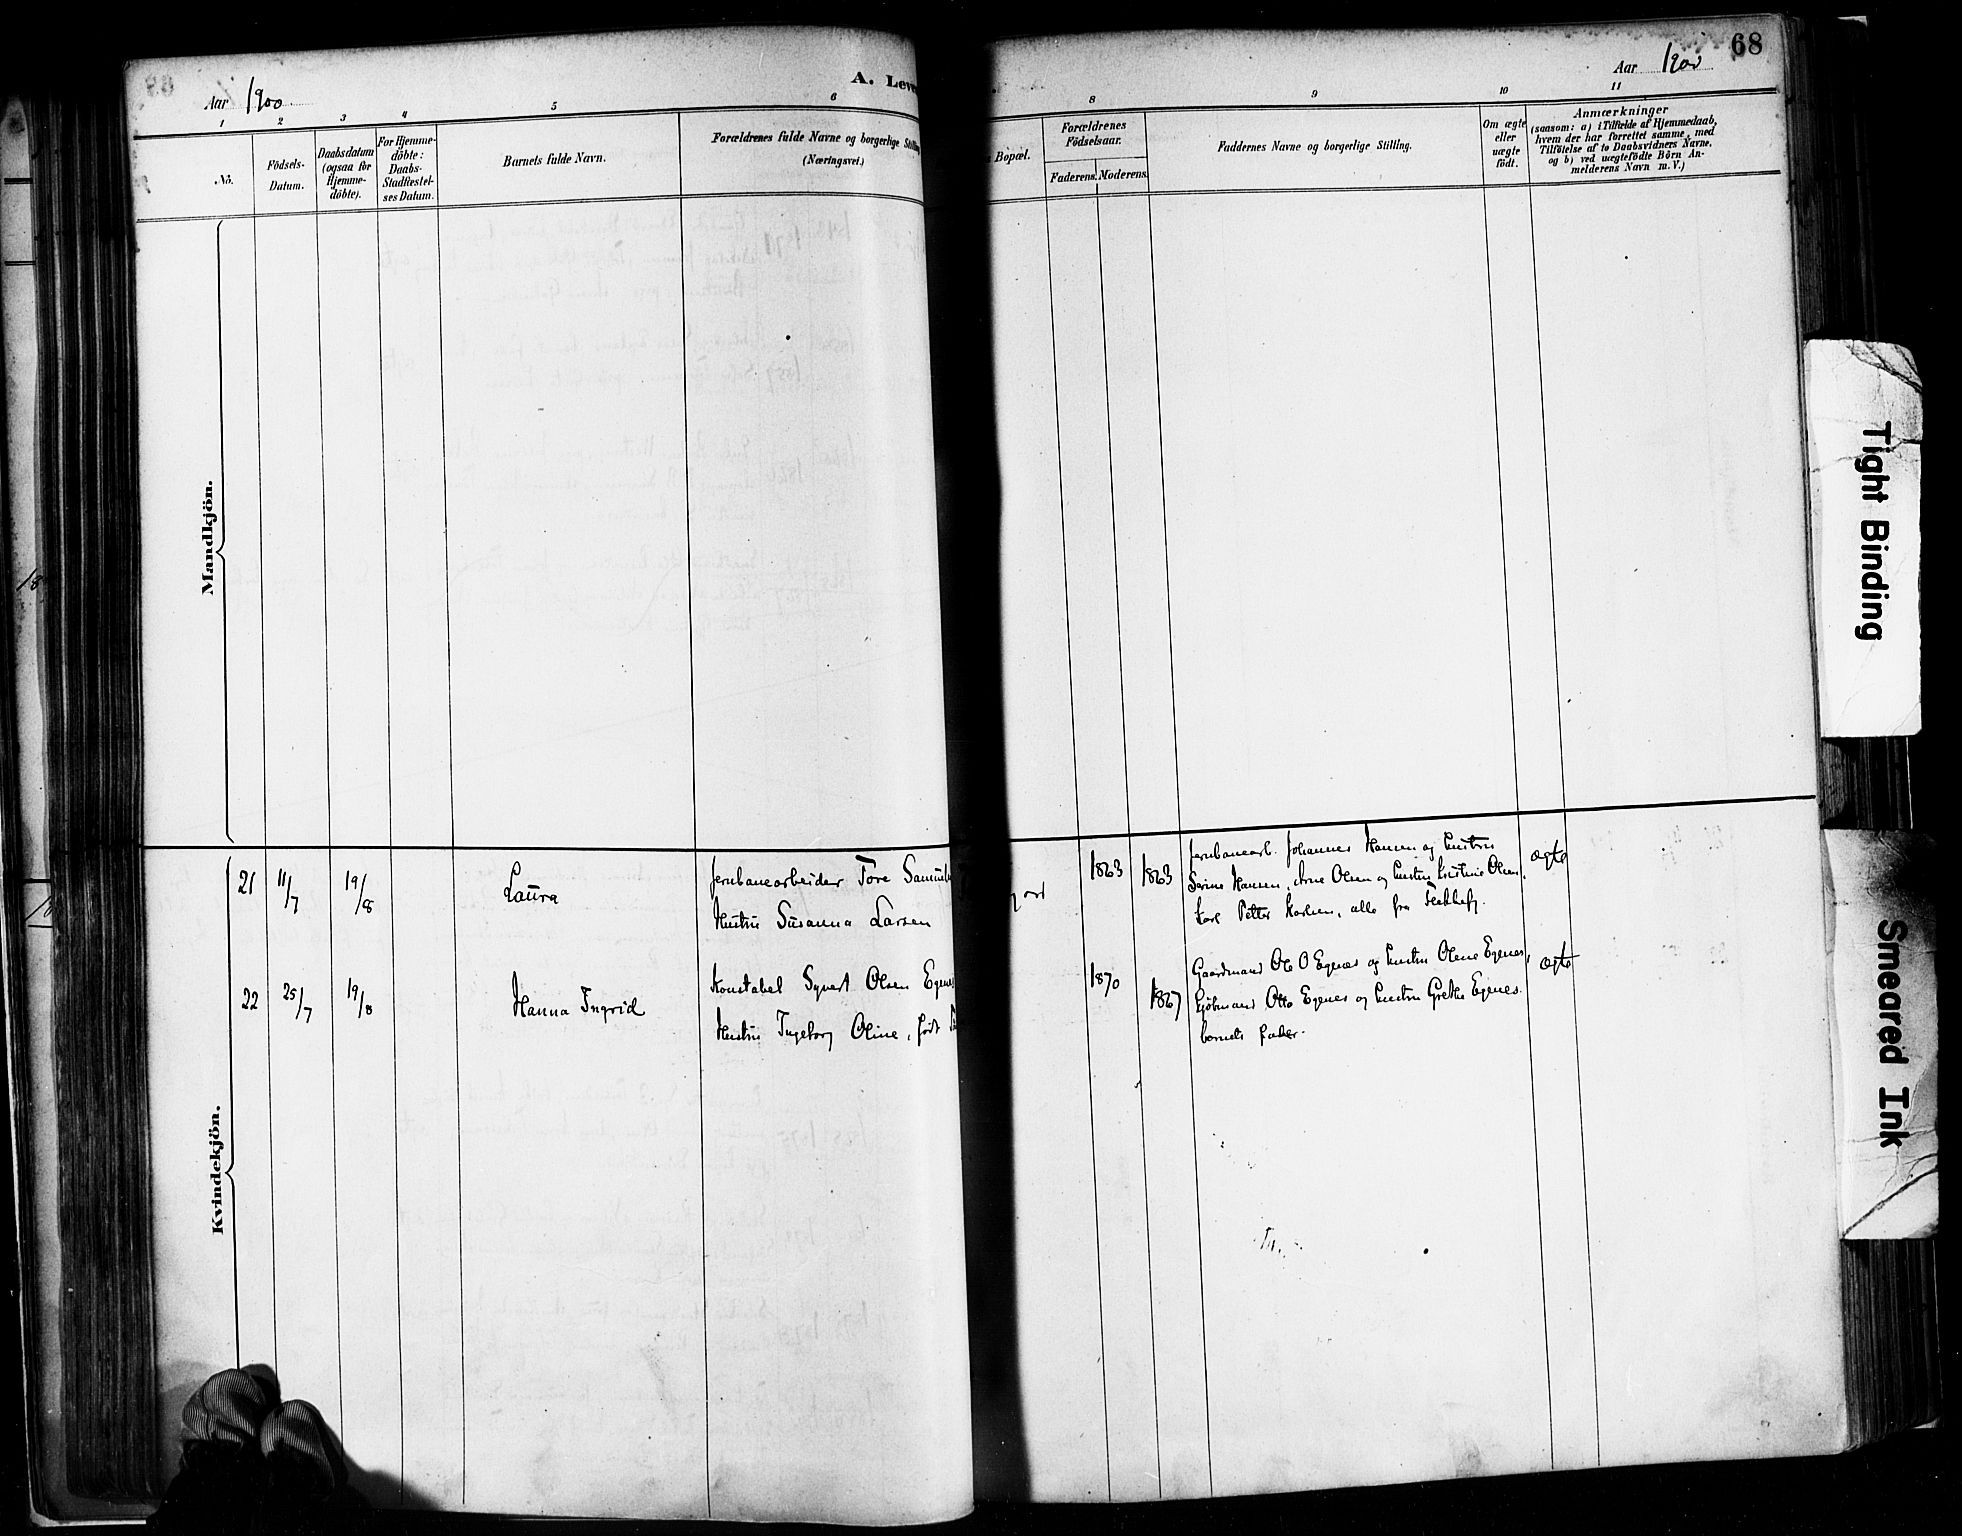 68
Aar 1900
A. Leve
Aar 1900
1 2 3 4 5 6
8 9 10 11
No.
Födsels-
Datum.
Daabsdatum
(ogsaa for
Hjemme-
döbte).
For Hjemme-
döbte:
Daabs-
Stadfæstel-
ses Datum.
Barnets fulde Navn.
Forældrenes fulde Navne og borgerlige Stilling
(Næringsvei.)
Bopæl.
Forældrenes
Födselsaar.
Faderens. Moderens.
Faddernes Navne og borgerlige Stilling.
Om ægte
eller
uægte
født.
Anmærkninger
(saasom: a) i Tilfælde af Hjemmedaab,
hvem der har forrettet samme, med
Tilföielse af to Daabsvidners Navne,
og b) ved uægtefödte Börn An-
melderens Navn m. V.)
Mandkjön.
Kvindekjön.
21 11/7 19/8 Laura
Jernbanearbeider Tore
Hustru Susanna Larsen
1863 1863
Jernbanearb. Johannes Hansen og Hustru
Serine Hansen, Arne Olsen og Hustru Kristine Olsen,
Karl Petter Karlsen, alle fra Flekkefj.
ægte
22 25/7 19/8 Hanna Ingrid
Konstabel Syvert Olsen Egenes
Hustru Ingeborg Oline, født
1870 1867
Gaardmand Ole O Egenes og Hustru Olene Egenes,
Kjöbmand Otto Egenes og Hustru Grethe Egenes.
barnets fader.
ægte
Tight Binding
Smeared Ink